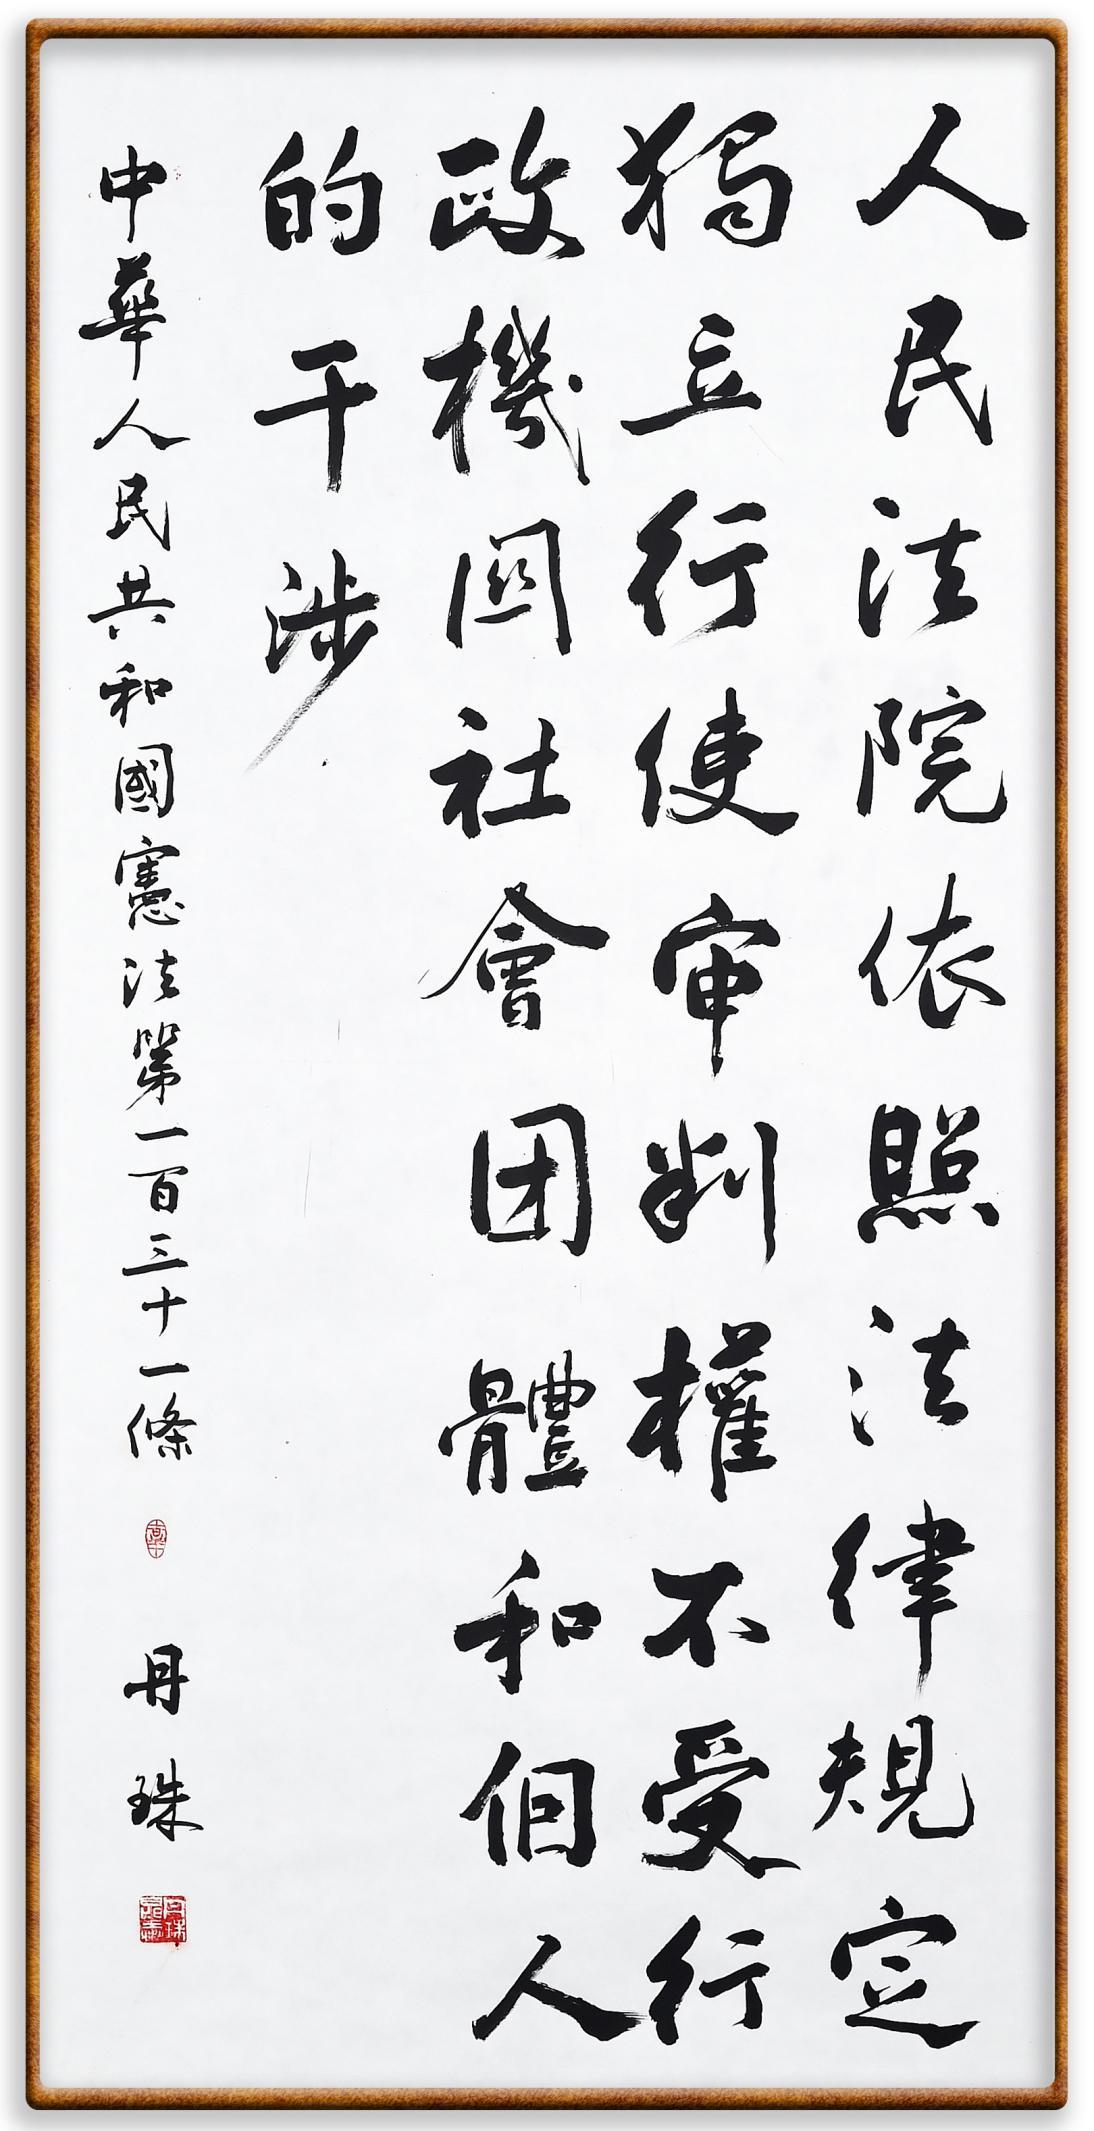 人民法院依照法律規定
獨立行使审判權不受行
政機関社會团體和個人
的干涉
中華人民共和國憲法第一百三十一條
丹珠